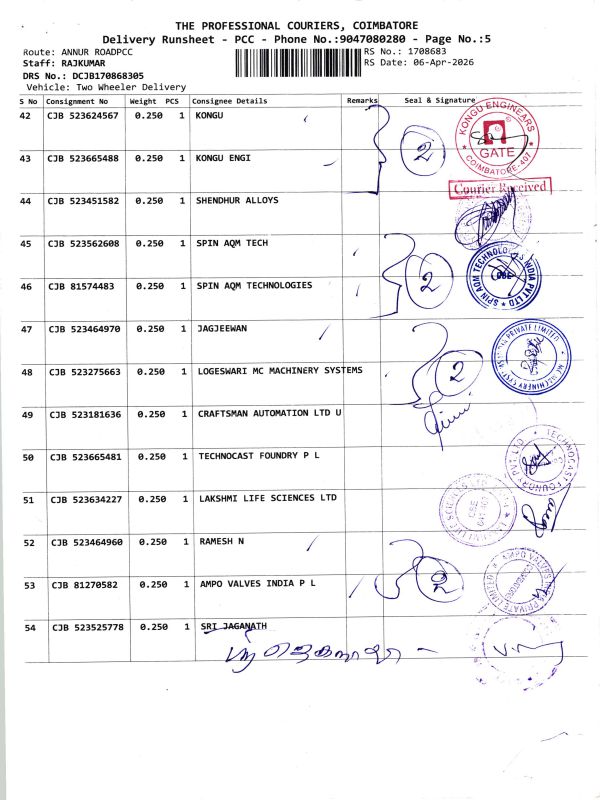 THE PROFESSIONAL COURIERS, COIMBATORE
Delivery Runsheet - PCC - Phone No.:9047080280 - Page No.:5
Route: ANNUR ROADPCC
RS No.: 1708683
Staff: RAJKUMAR
RS Date: 06-Apr-2026
DRS No.: DCJB170868305
Vehicle: Two Wheeler Delivery
S No Consignment No Weight PCS Consignee Details Remarks Seal & Signature
42 CJB 523624567 0.250 1 KONGU
KONGU ENGINEARS
GATE
COIMBATORE-407
2
43 CJB 523665488 0.250 1 KONGU ENGI
Courier Received
44 CJB 523451582 0.250 1 SHENDHUR ALLOYS
45 CJB 523562608 0.250 1 SPIN AQM TECH
SPIN AQM TECHNOLOGIES INDIA PVT LTD
2
46 CJB 81574483 0.250 1 SPIN AQM TECHNOLOGIES
47 CJB 523464970 0.250 1 JAGJEEWAN
PRIVATE LIMITED
MC MACHINERY
2
48 CJB 523275663 0.250 1 LOGESWARI MC MACHINERY SYSTEMS
49 CJB 523181636 0.250 1 CRAFTSMAN AUTOMATION LTD U
50 CJB 523665481 0.250 1 TECHNOCAST FOUNDRY P L
TECHNOCAST FOUNDRY PVT LTD
51 CJB 523634227 0.250 1 LAKSHMI LIFE SCIENCES LTD
52 CJB 523464960 0.250 1 RAMESH N
2
53 CJB 81270582 0.250 1 AMPO VALVES INDIA P L
AMPO VALVES
PRIVATE LIMITED
54 CJB 523525778 0.250 1 SRI JAGANATH